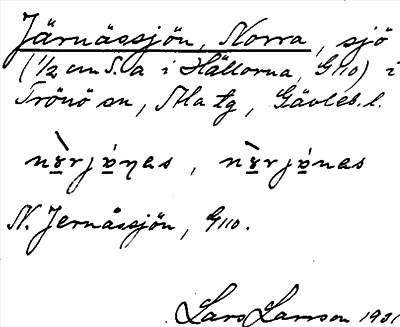 Järnässjön, Norra, sjö
(1/2 cm S. a i Hällorna, G110) i
Trönö sn, Ala tg, Gävleb. l.
N. Jernässjön, G110.
Lars Larsson 1931